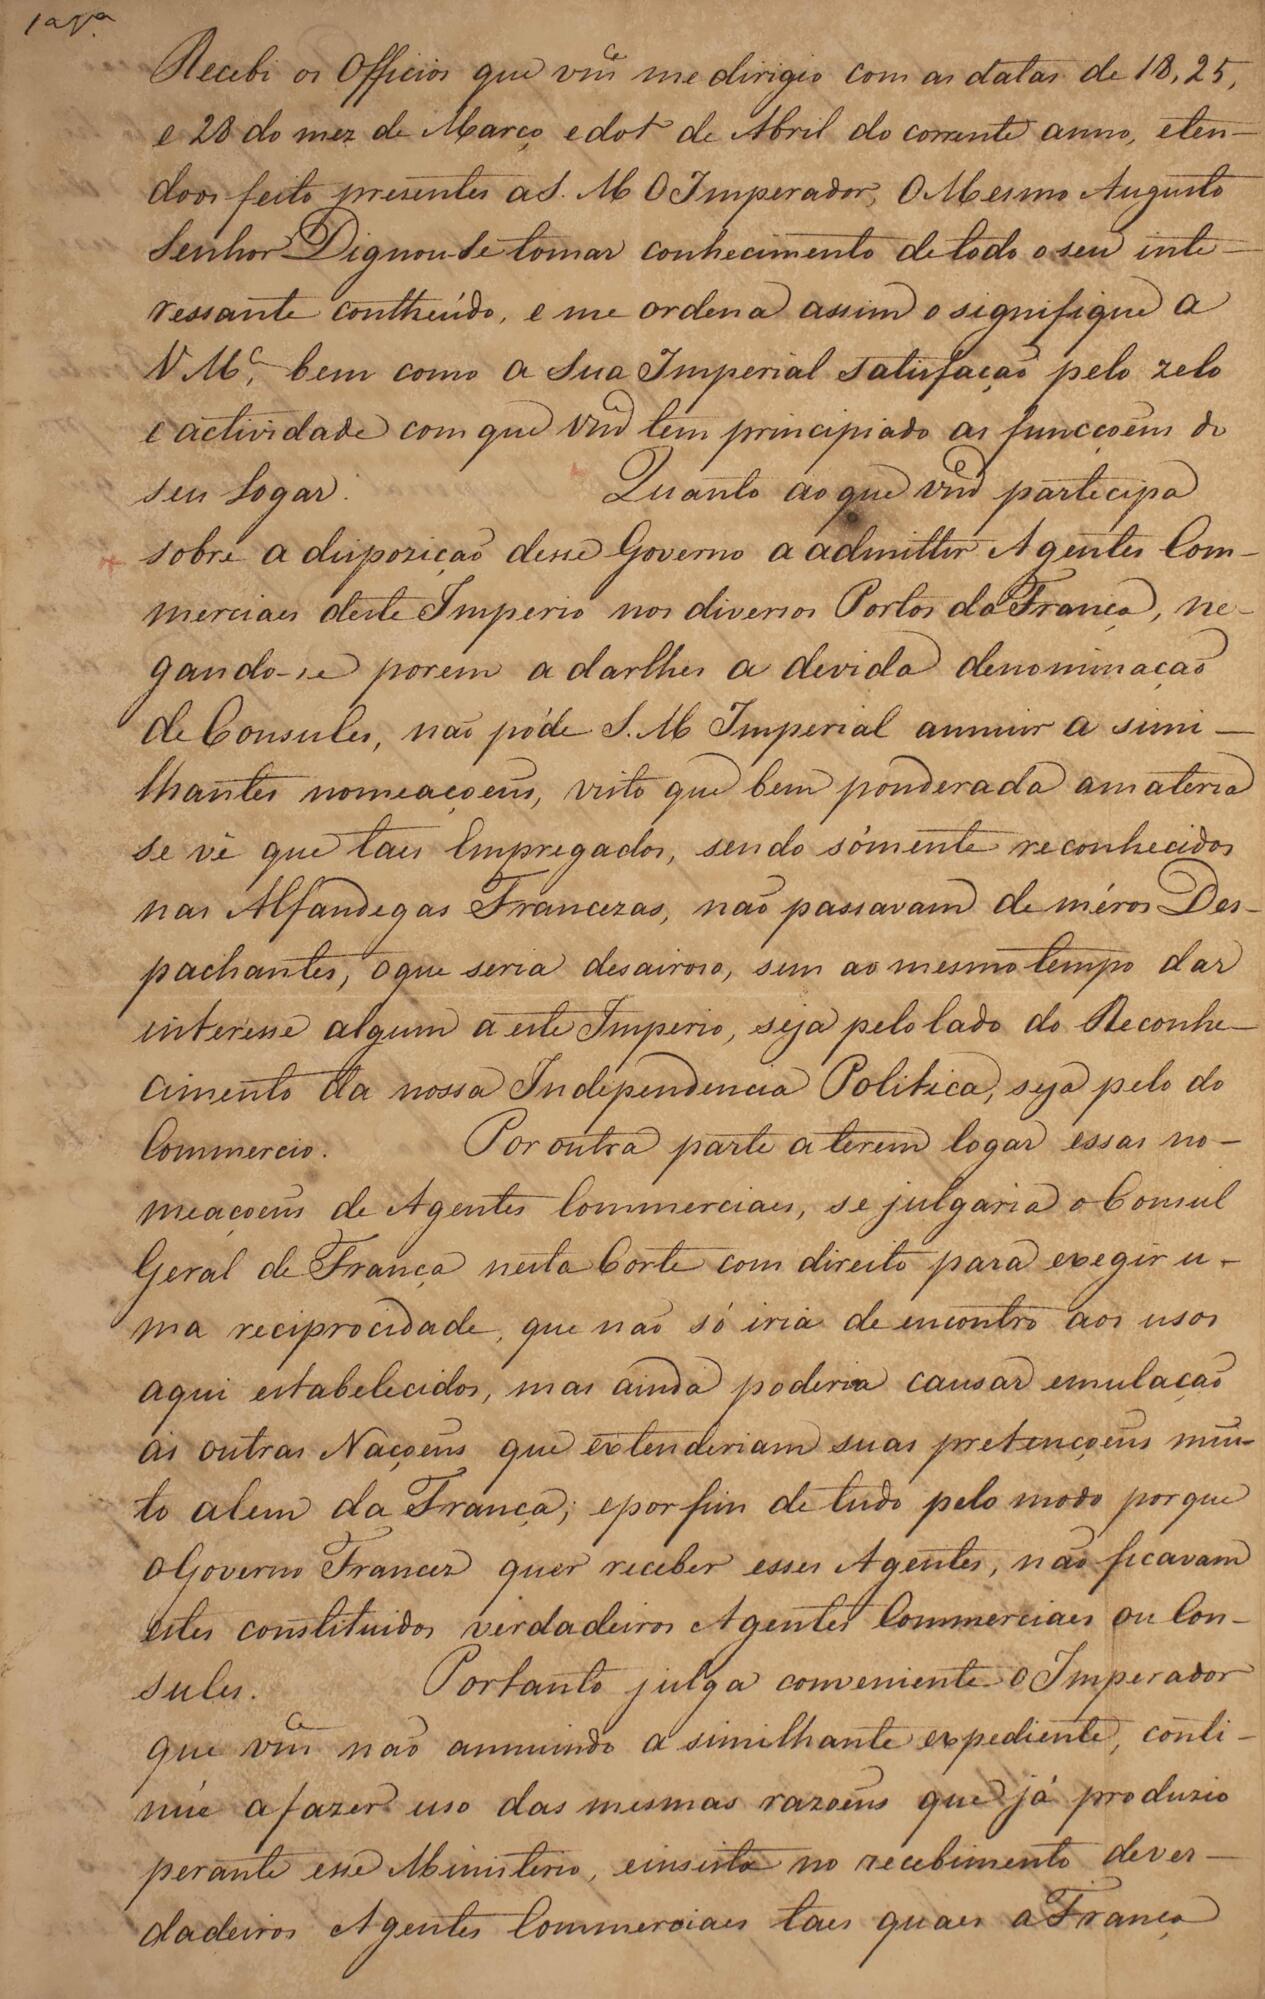 1ª Vª
Recebi os Officios que vm.ce me dirigio com as datas de 18, 25,
e 28 do mez de Março, e do 1 de Abril do corrente anno, e ten-
doos feito presentes a S. M O Imperador, O Mesmo Augusto
Senhor Dignou-Se tomar conhecimento de todo o seu inte-
ressante contheúdo, e me ordena assim o signifique a
V Mc, bem como a Sua Imperial Satisfação pelo zelo
e actividade com que vm.ce tem principiado as funcçoens do
seu Logar. Quanto ao que vm.ce participa
sobre a dispozição desse Governo a admittir Agentes Com-
merciaes deste Imperio nos diversos Portos da França, ne-
gando-se porem a darlhes a devida denominação
de Consules, não póde S. M Imperial annuir a simi-
lhantes nomeaçoens, visto que bem ponderada a materia
se vê que taes Empregados, sendo sómente reconhecidos
nas Alfandegas Francezas, não passavam de méros Des-
pachantes, o que seria desairoso, sem ao mesmo tempo dar
interesse algum a este Imperio, seja pelo lado do Reconhe-
cimento da nossa Independencia Politica, seja pelo do
Commercio. Por outra parte a terem logar essas no-
meaçoens de Agentes Commerciaes, se julgaria o Consul
Geral de França nesta Corte com direito para exegir u-
ma reciprocidade, que não só iria de encontro aos usos
aqui estabelecidos, mas ainda poderia causar emulação
ás outras Naçoens que extenderiam suas pretençoens mui-
to alem da França; e por fim de tudo pelo modo por que
o Governo Francez quer receber esses Agentes, não ficavam
estes constituidos verdadeiros Agentes Commerciaes ou Con-
sules. Portanto julga conveniente O Imperador
que vm.ce não annuindo a similhante expediente, conti-
núe a fazer uso das mesmas razoens que já produzio
perante esse Ministerio, e insista no recebimento de ver-
dadeiros Agentes Commerciaes taes quaes a França